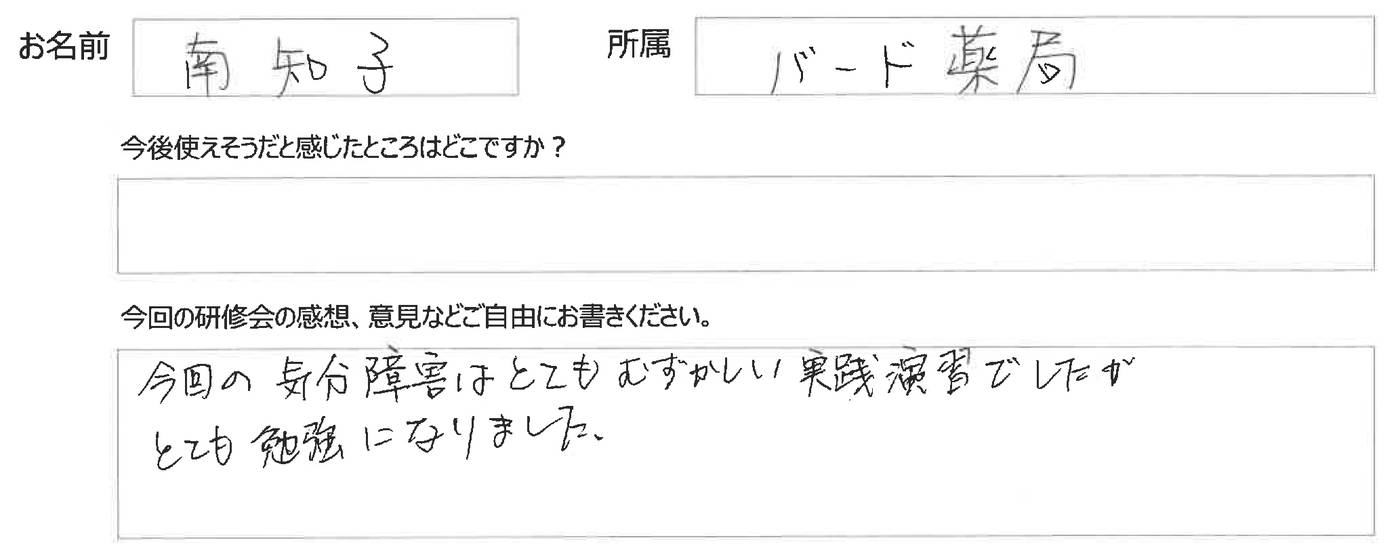 お名前 南 知子 所属 バード薬局
今後使えそうだと感じたところはどこですか？
今回の研修会の感想、意見などご自由にお書きください。
今回の気分障害はとてもむずかしい実践演習でしたが
とても勉強になりました。